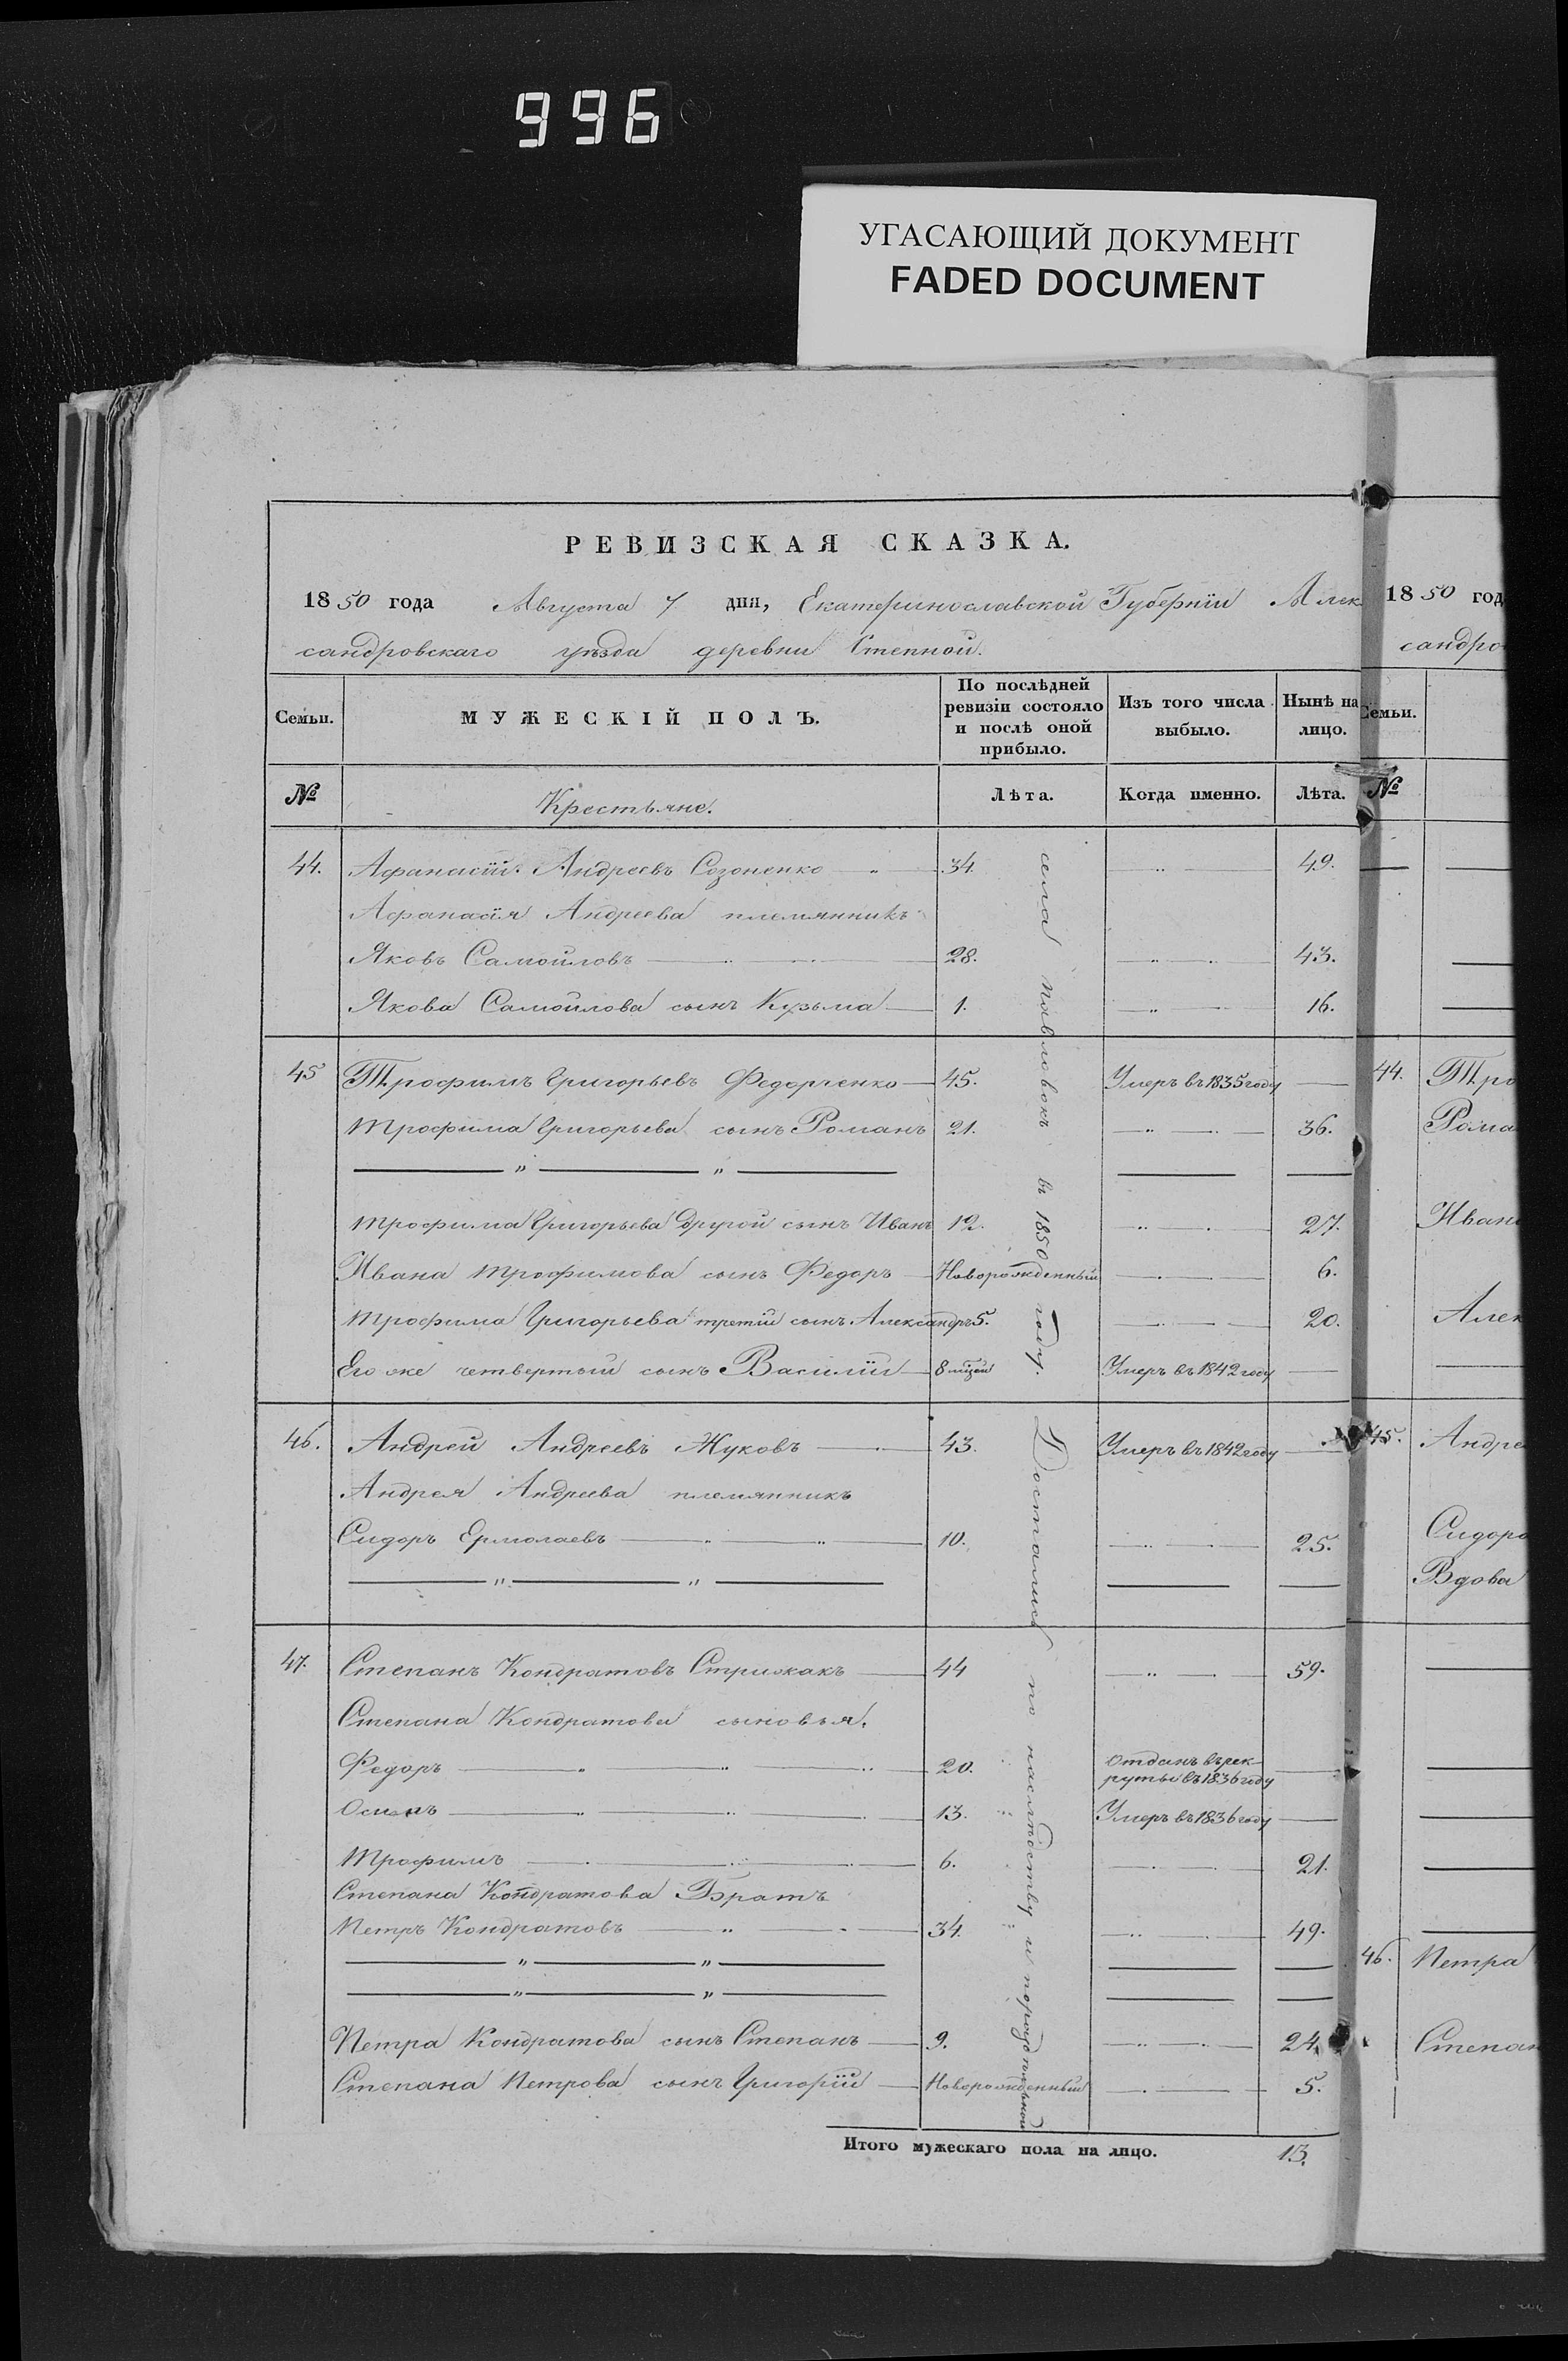 996
УГАСАЮЩИЙ ДОКУМЕНТ
FADED DOCUMENT
РЕВИЗСКАЯ СКАЗКА.
1850 года Августа 7 дня, Екатеринославской Губерніи Алек
сандровскаго уѣзда деревни Степной.
Семьи. МУЖЕСКІЙ ПОЛЪ. По послѣдней ревизіи состояло и послѣ оной прибыло. Изъ того числа выбыло. Нынѣ на лицо.
№ Крестьяне. Лѣта. Когда именно. Лѣта.
44. Афанасій Андреевъ Созоненко 34. 49.
Афанасія Андреева племянникъ
Яковъ Самойловъ 28. 43.
Якова Самойлова сынъ Кузьма 1. 16.
45 Трофимъ Григорьевъ Федорченко 45. Умеръ въ 1835 году
Трофима Григорьева сынъ Романъ 21. 36.
Трофима Григорьева другой сынъ Иванъ 12. 27.
Ивана Трофимова сынъ Федоръ Новорожденный 6.
Трофима Григорьева третій сынъ Александръ 5. 20.
Его же четвертый сынъ Василій 8 мѣцей Умеръ въ 1842 году
46. Андрей Андреевъ Жуковъ 43. Умеръ въ 1842 году
Андрея Андреева племянникъ
Сидоръ Ермолаевъ 10. 25.
47. Степанъ Кондратовъ Стрижакъ 44 59.
Степана Кондратова сыновья.
Федоръ 20. Отданъ въ рек
руты въ 1836 году
Осипъ 13. Умеръ въ 1836 году
Трофимъ 6. 21.
Степана Кондратова Братъ
Петръ Кондратовъ 34. 49.
Петра Кондратова сынъ Степанъ 9. 24.
Степана Петрова сынъ Григорій Новорожденный 5.
Итого мужескаго пола на лицо. 13.
Достались по наслѣдству и
села Павловокъ въ 1850 году.
1850 год
сандро
Семьи.
№
44. Тро
Рома
Иван
Алек
45. Андре
Сидора
Вдова
46. Петра
Степан